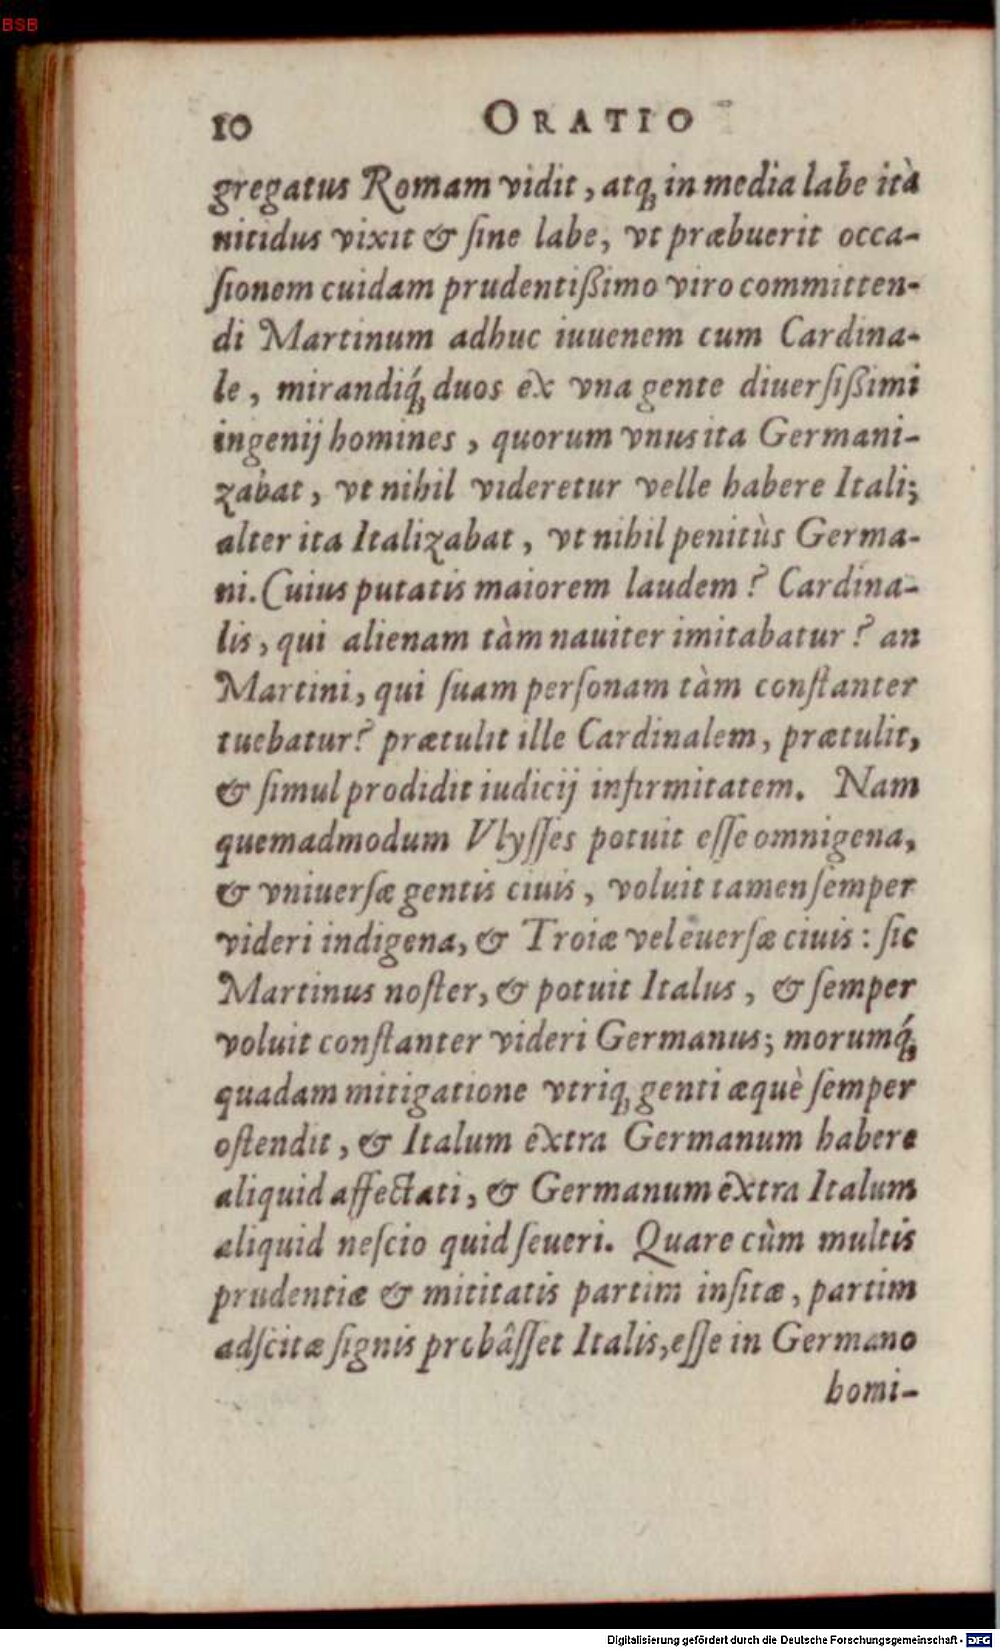 BSB
10 ORATIO
gregatus Romam vidit, atq; in media labe ità
nitidus vixit & ſine labe, vt præbuerit occa-
ſionem cuidam prudentißimo viro committen-
di Martinum adhuc iuuenem cum Cardina-
le, mirandiq́; duos ex vna gente diuerſißimi
ingenij homines, quorum vnus ita Germani-
zabat, vt nihil videretur velle habere Itali;
alter ita Italizabat, vt nihil penitùs Germa-
ni. Cuius putatis maiorem laudem? Cardina-
lis, qui alienam tàm nauiter imitabatur? an
Martini, qui ſuam perſonam tàm conſtanter
tuebatur? prætulit ille Cardinalem, prætulit,
& ſimul prodidit iudicij infirmitatem. Nam
quemadmodum Vlyſſes potuit eſſe omnigena,
& vniuerſæ gentis ciuis, voluit tamen ſemper
videri indigena, & Troiæ vel euerſæ ciuis: ſic
Martinus noſter, & potuit Italus, & ſemper
voluit conſtanter videri Germanus; morumq́;
quadam mitigatione vtriq; genti æquè ſemper
oſtendit, & Italum extra Germanum habere
aliquid affectati, & Germanum extra Italum
aliquid neſcio quid ſeueri. Quare cùm multis
prudentiæ & mititatis partim inſitæ, partim
adſcitæ ſignis probâſſet Italis, eſſe in Germano
homi-
Digitalisierung gefördert durch die Deutsche Forschungsgemeinschaft - DFG